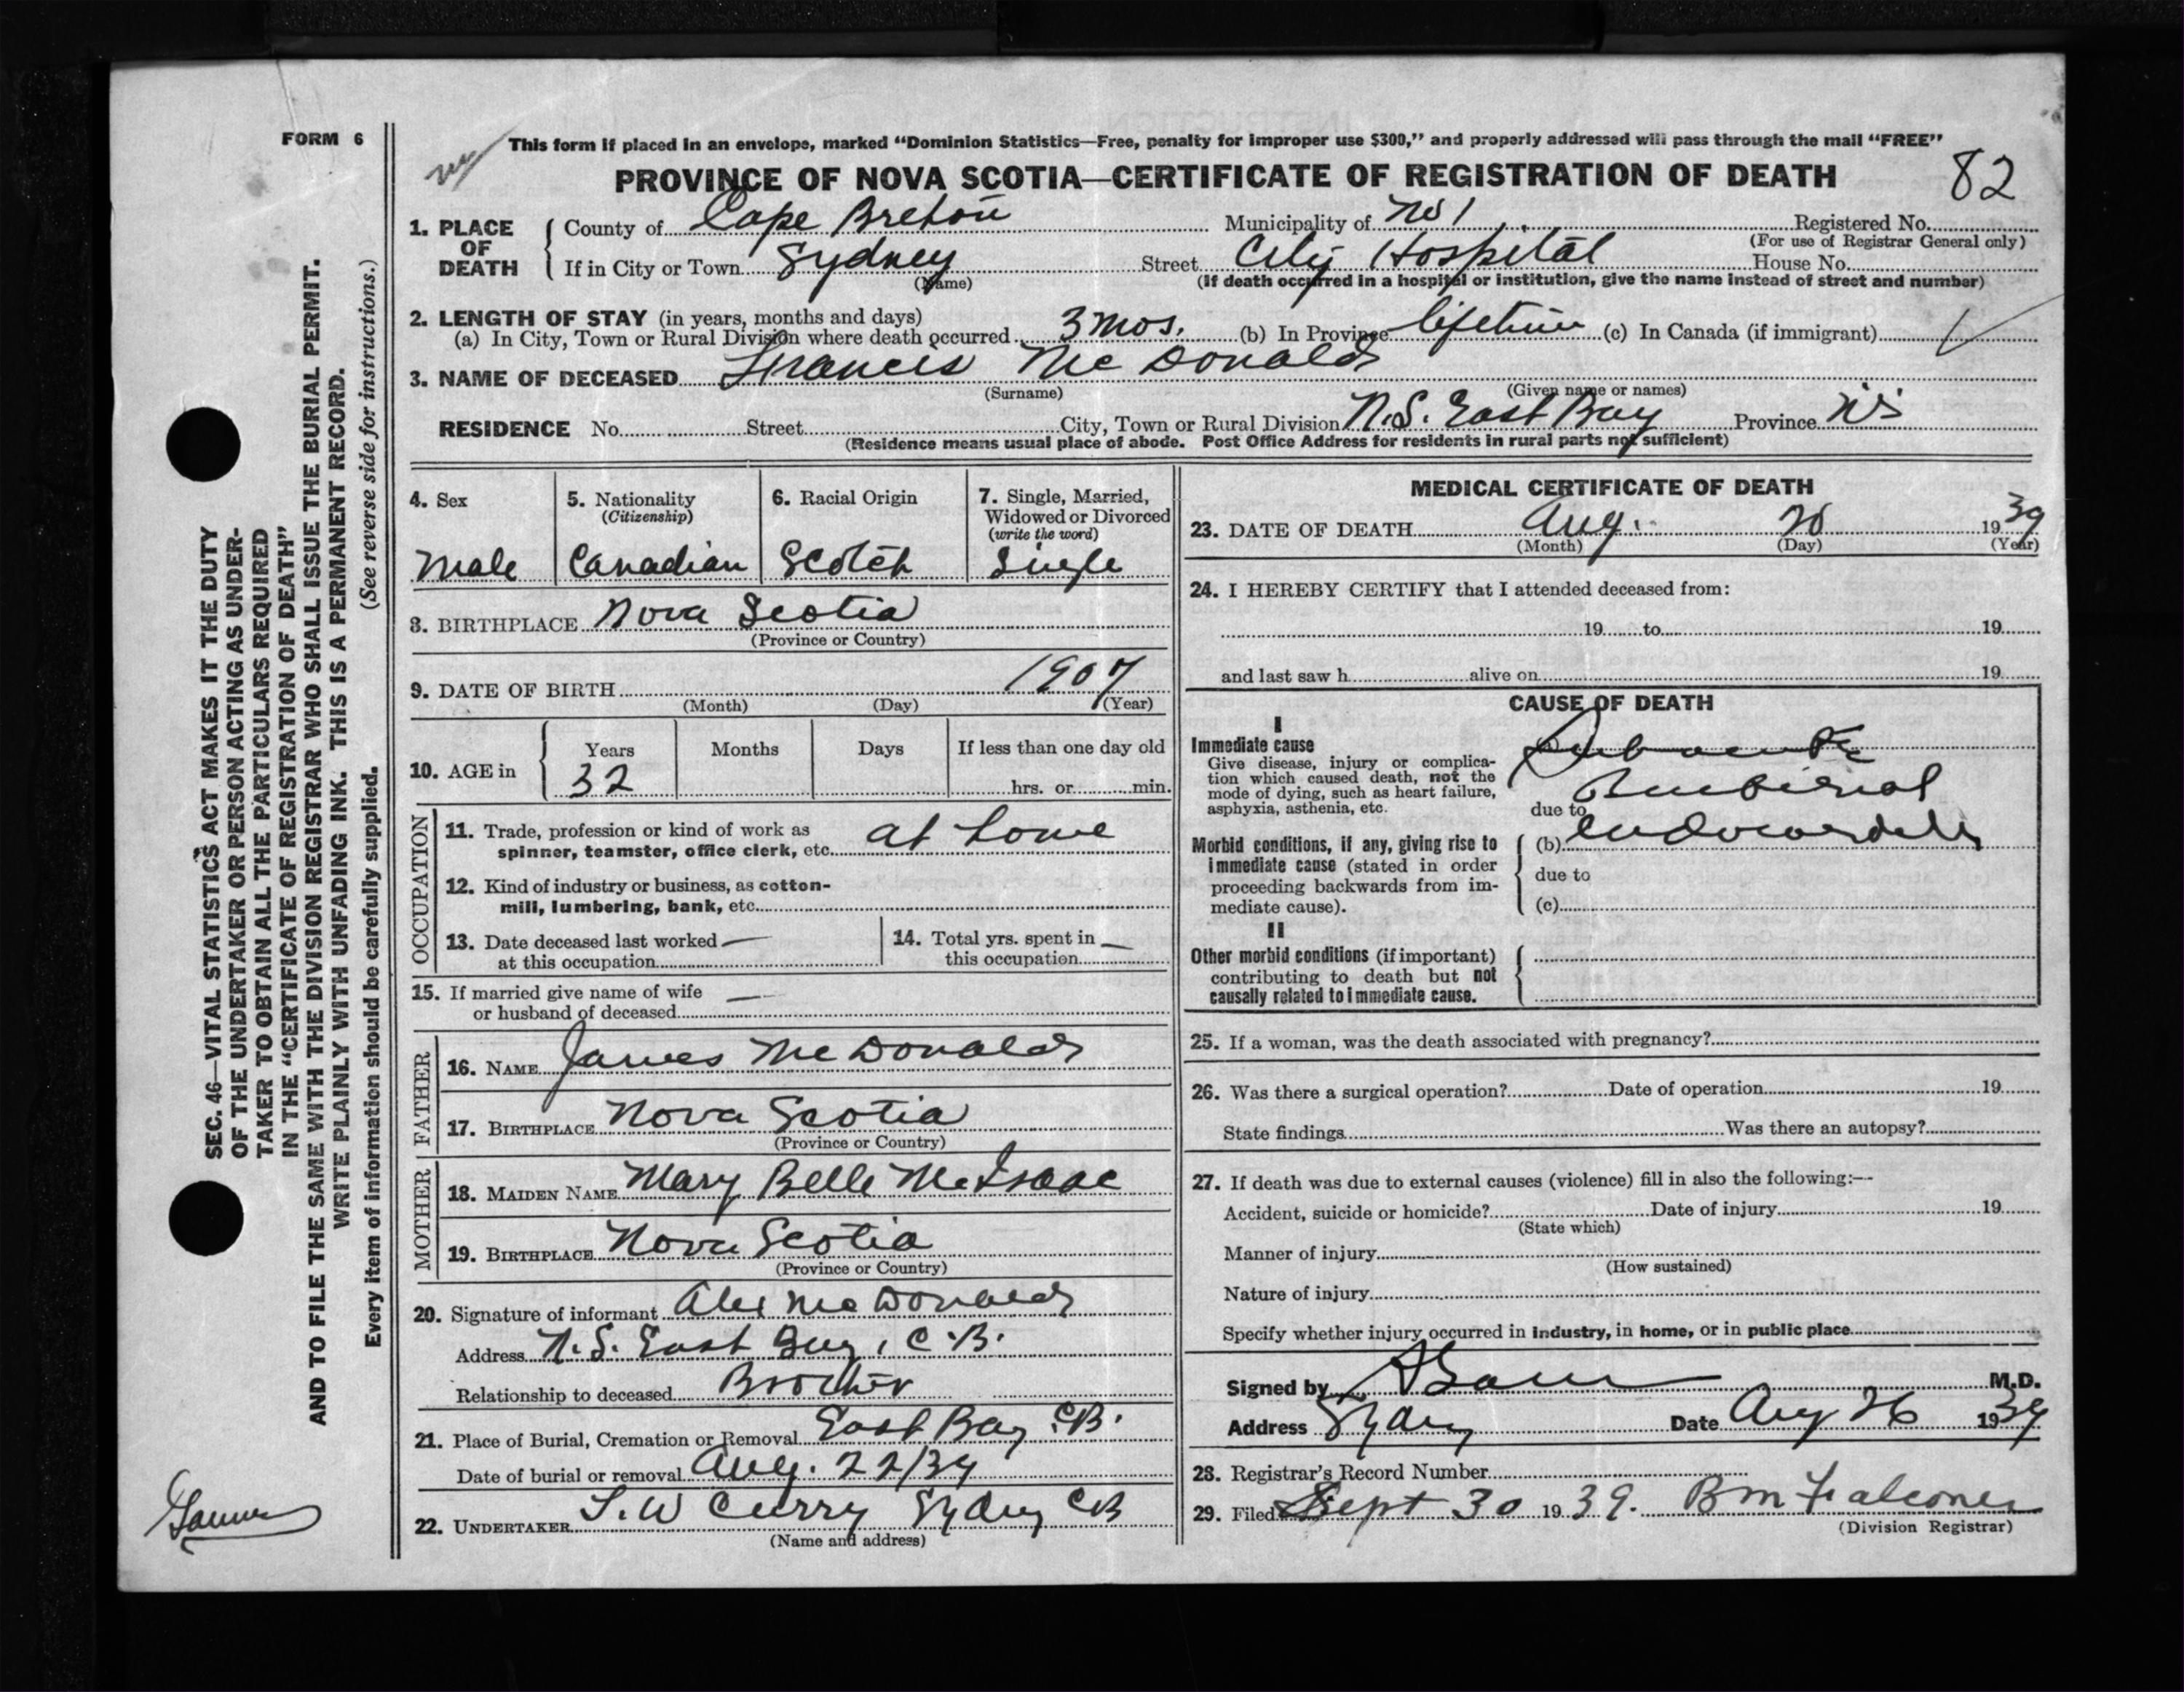 FORM 6
This form if placed in an envelope, marked “Dominion Statistics—Free, penalty for improper use $300,” and properly addressed will pass through the mail “FREE”
PROVINCE OF NOVA SCOTIA—CERTIFICATE OF REGISTRATION OF DEATH 82
1. PLACE OF DEATH
County of Cape Breton Municipality of No 1 Registered No.
(For use of Registrar General only)
If in City or Town Sydney Street City Hospital House No.
(Name) (If death occurred in a hospital or institution, give the name instead of street and number)
2. LENGTH OF STAY (in years, months and days)
(a) In City, Town or Rural Division where death occurred 3 mos. (b) In Province lifetime (c) In Canada (if immigrant)
3. NAME OF DECEASED Francis McDonald
(Surname) (Given name or names)
RESIDENCE No. Street City, Town or Rural Division N.S. East Bay Province N.S.
(Residence means usual place of abode. Post Office Address for residents in rural parts not sufficient)
4. Sex
Male
5. Nationality
(Citizenship)
Canadian
6. Racial Origin
Scotch
7. Single, Married,
Widowed or Divorced
(write the word)
Single
8. BIRTHPLACE Nova Scotia
(Province or Country)
9. DATE OF BIRTH 1907
(Month) (Day) (Year)
10. AGE in
Years Months Days If less than one day old
32 hrs. or min.
OCCUPATION
11. Trade, profession or kind of work as
spinner, teamster, office clerk, etc. at home
12. Kind of industry or business, as cotton-
mill, lumbering, bank, etc.
13. Date deceased last worked —
at this occupation
14. Total yrs. spent in —
this occupation
15. If married give name of wife —
or husband of deceased
FATHER
16. NAME James McDonald
17. BIRTHPLACE Nova Scotia
(Province or Country)
MOTHER
18. MAIDEN NAME Mary Belle McIsaac
19. BIRTHPLACE Nova Scotia
(Province or Country)
20. Signature of informant Alex McDonald
Address N.S. East Bay, C.B.
Relationship to deceased Brother
21. Place of Burial, Cremation or Removal East Bay C.B.
Date of burial or removal Aug. 22/39
22. UNDERTAKER W Curry Sydney CB
(Name and address)
MEDICAL CERTIFICATE OF DEATH
23. DATE OF DEATH Aug. 20 1939
(Month) (Day) (Year)
24. I HEREBY CERTIFY that I attended deceased from:
19 to 19
and last saw h alive on 19
CAUSE OF DEATH
I
Immediate cause
Give disease, injury or complica-
tion which caused death, not the
mode of dying, such as heart failure,
asphyxia, asthenia, etc.
(a) Subacute
Bacterial
due to
Morbid conditions, if any, giving rise to
immediate cause (stated in order
proceeding backwards from im-
mediate cause).
(b) endocarditis
due to
(c)
II
Other morbid conditions (if important)
contributing to death but not
causally related to immediate cause.
25. If a woman, was the death associated with pregnancy?
26. Was there a surgical operation? Date of operation 19
State findings Was there an autopsy?
27. If death was due to external causes (violence) fill in also the following:—
Accident, suicide or homicide? Date of injury 19
(State which)
Manner of injury
(How sustained)
Nature of injury
Specify whether injury occurred in industry, in home, or in public place
Signed by M.D.
Address Sydney Date Aug 26 1939
28. Registrar's Record Number
29. Filed Sept 30 1939. B M Falconer
(Division Registrar)
SEC. 46—VITAL STATISTICS ACT MAKES IT THE DUTY
OF THE UNDERTAKER OR PERSON ACTING AS UNDER-
TAKER TO OBTAIN ALL THE PARTICULARS REQUIRED
IN THE “CERTIFICATE OF REGISTRATION OF DEATH”
AND TO FILE THE SAME WITH THE DIVISION REGISTRAR WHO SHALL ISSUE THE BURIAL PERMIT.
WRITE PLAINLY WITH UNFADING INK. THIS IS A PERMANENT RECORD.
Every item of information should be carefully supplied. (See reverse side for instructions.)